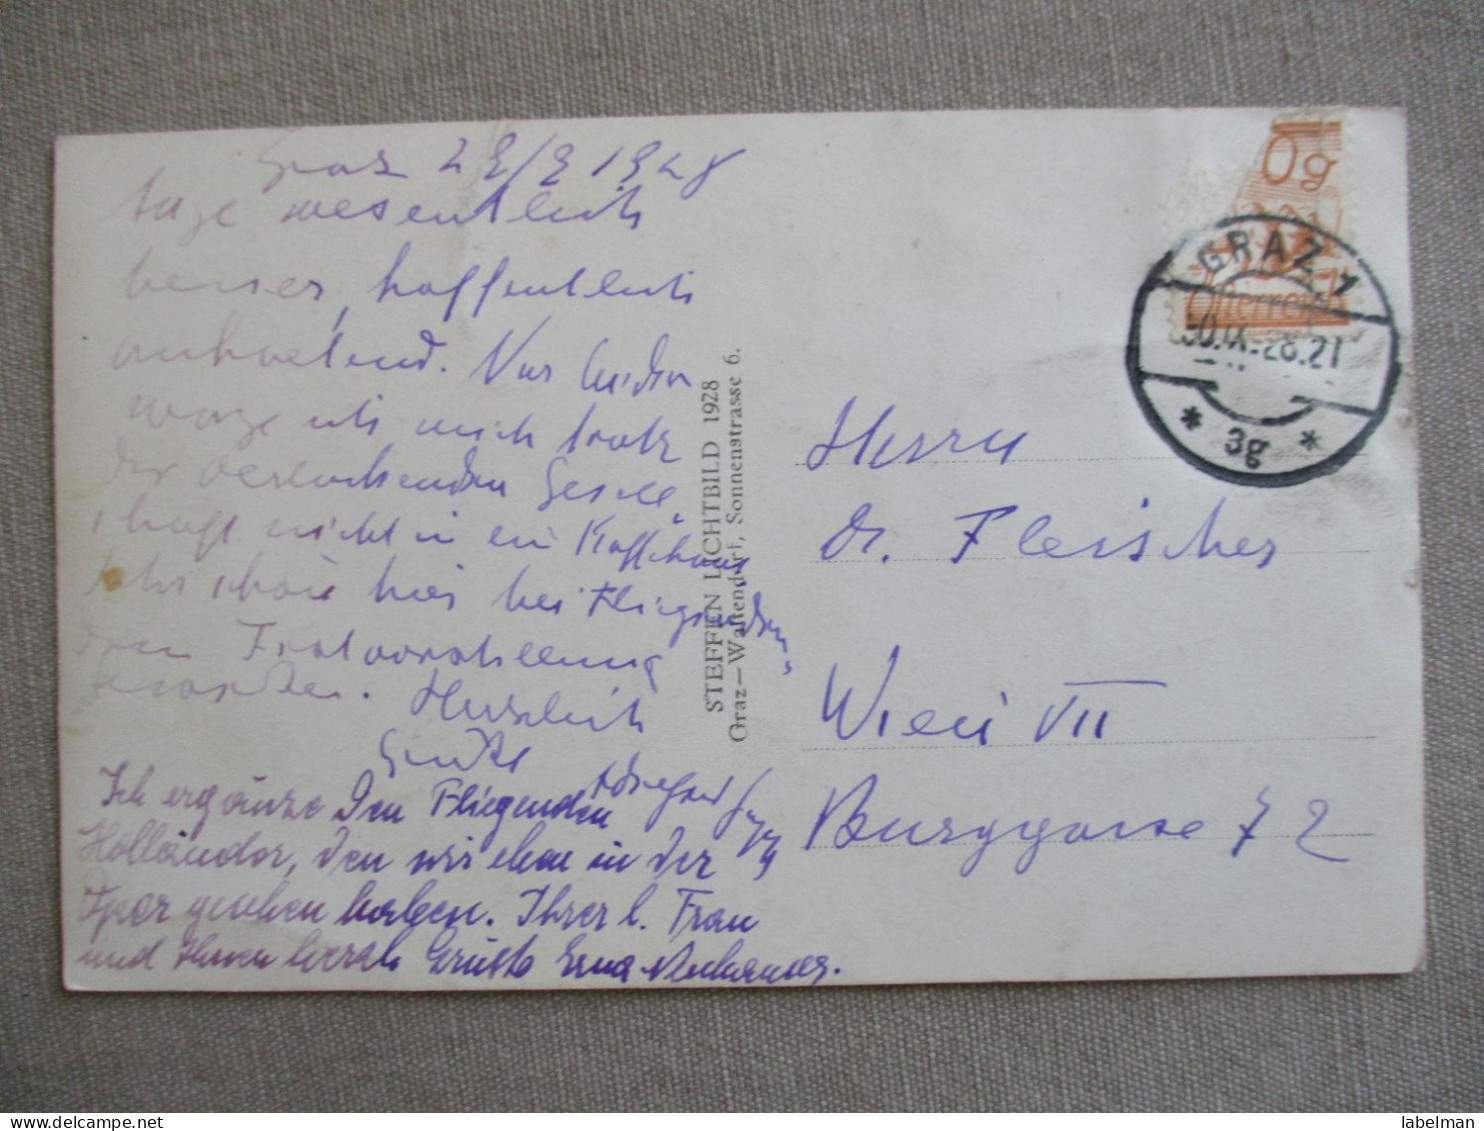 Graz 29/9 1928
tage wesentlich
besser, hoffentlich
anhaltend. Nur leider
wage ich mich trotz
der verlockenden Gesell
schaft nicht in ein Kaffehaus
hier bei Fliegenden
Festvorstellung
Herzlich
Ich ergänze den Fliegenden
Holländer, den wir eben in der
Oper gesehen haben. Ihrer l. Frau
und Ihnen herzl. Grüße Erna
STEFFEN LICHTBILD 1928
Graz—Waltendorf, Sonnenstrasse 6.
0g
Österreich
GRAZ 1
30.IX.-28.21
* 3g *
Herrn
Dr. Fleischer
Wien VII
Burggasse 72
labelman
delcampe.net